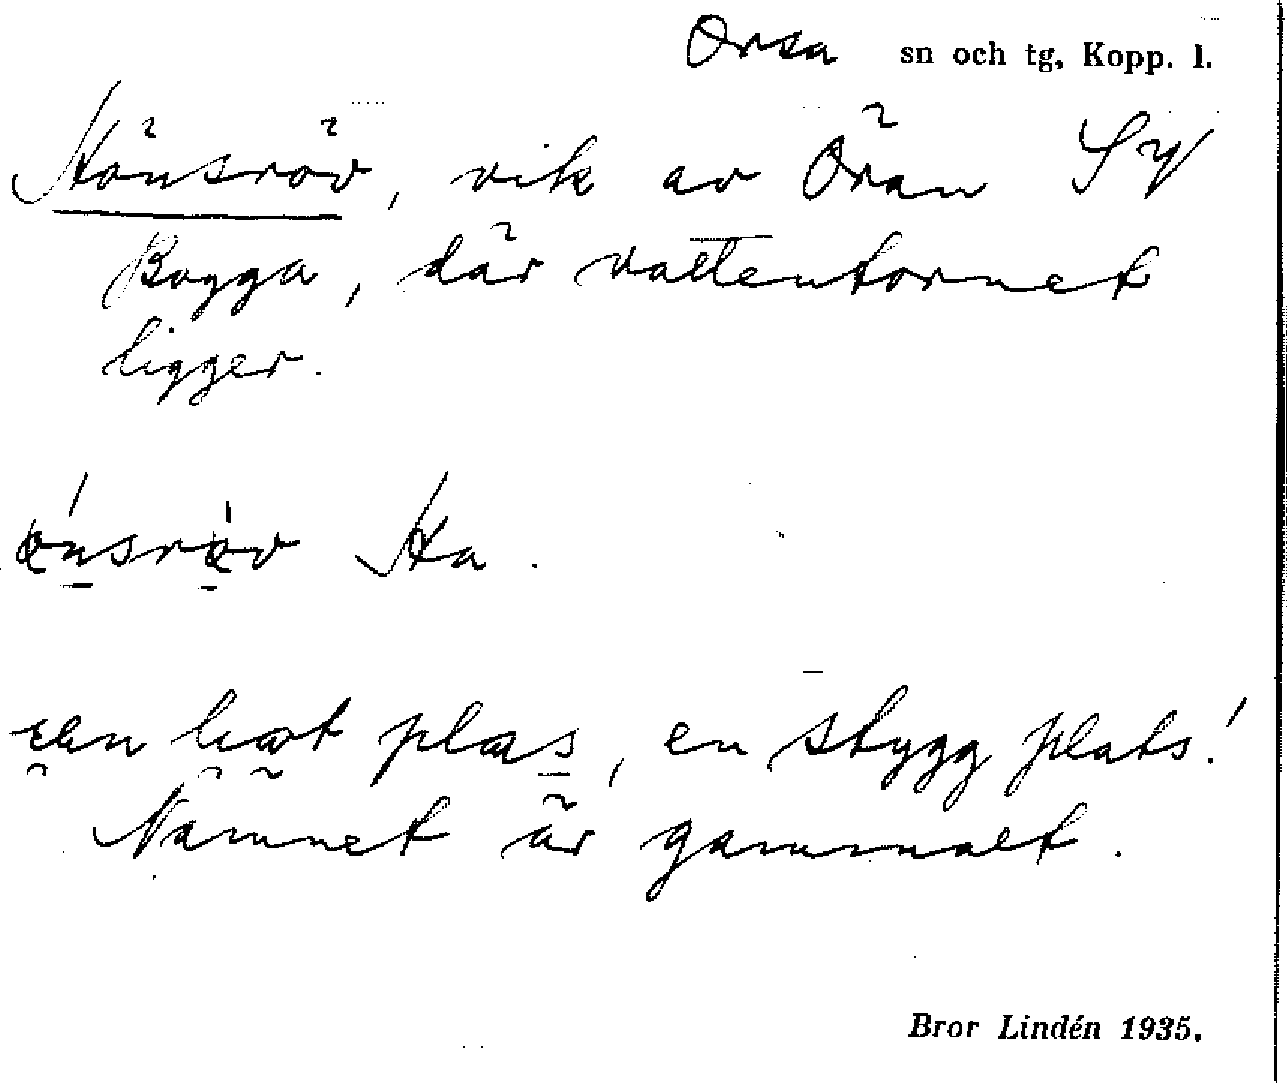 Orsa sn och tg, Kopp. l.
Hönsröv, vik av Öran SV
Bogga, där vattentornet
ligger.
Ha.
plas, en stygg plats!
Namnet är gammalt.
Bror Lindén 1935.